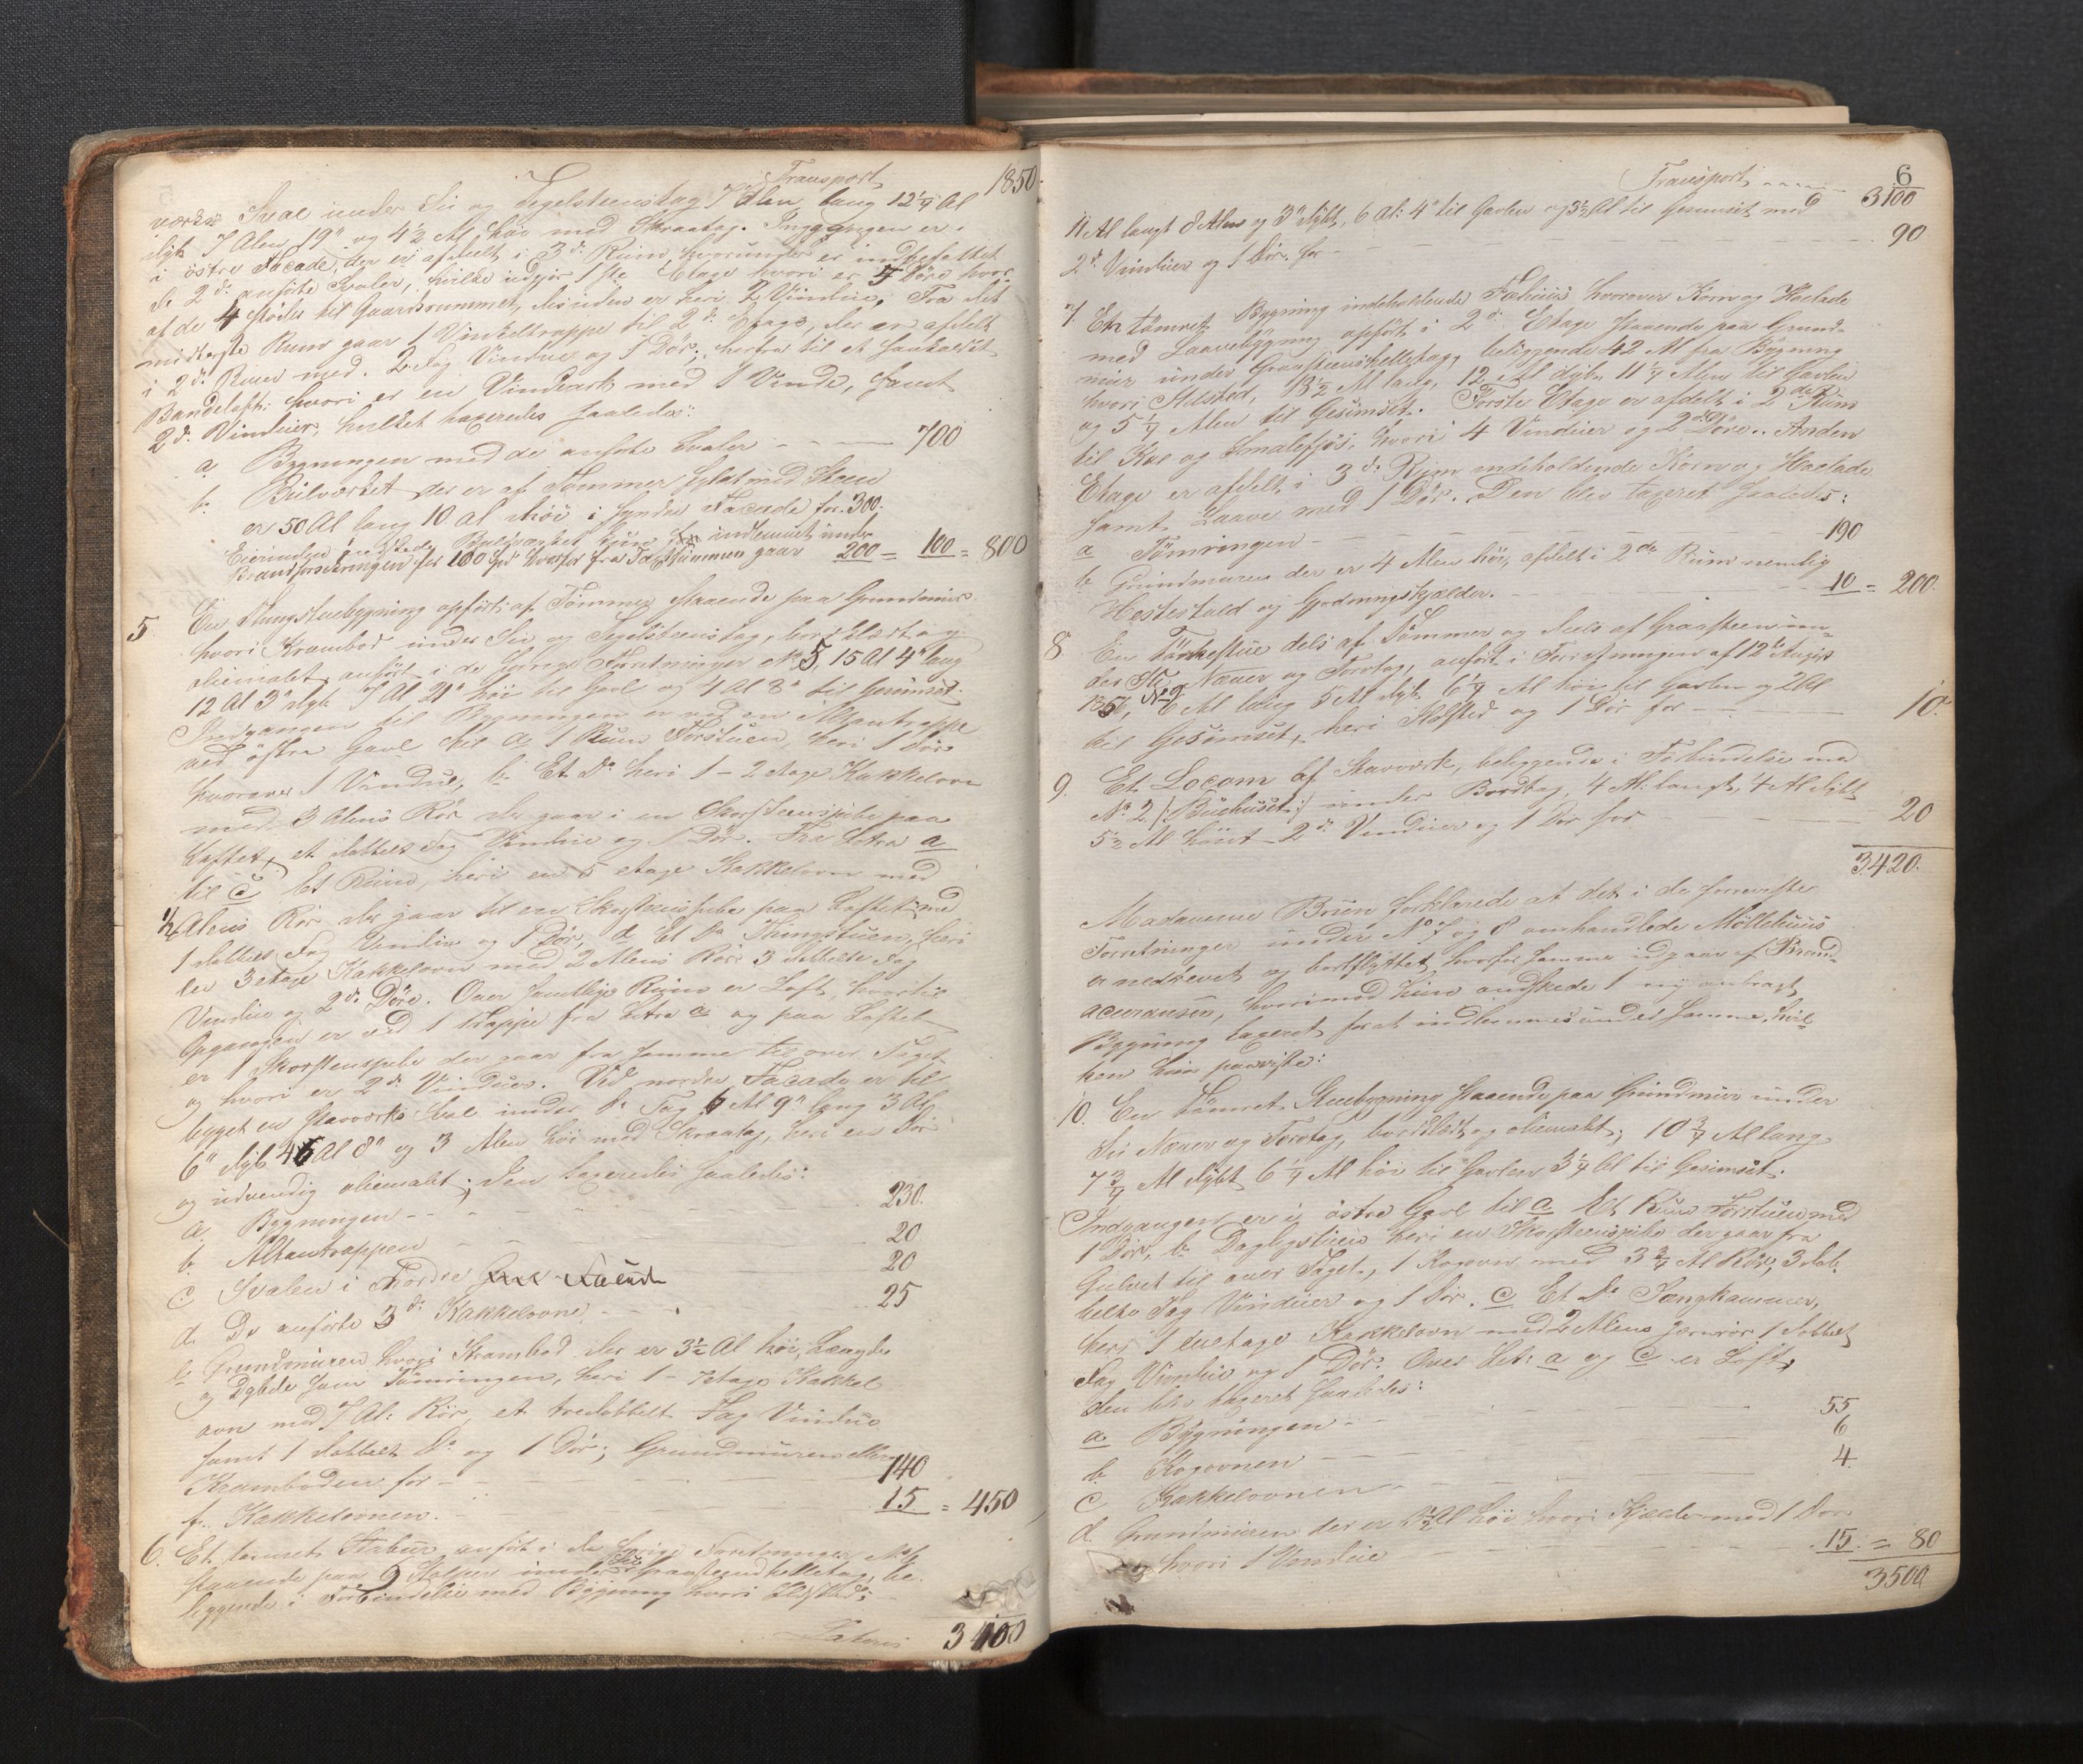 Transport 1850.
værks Sval under Sú og Tegelsteenstag 7 Alen lang 12 1/4 Al
dÿb 7 Alen 19" og 4 1/2 Al høi med Skraatag. Indgangen er
i östre Facade, der er afdelt i 3de Rum hvorunder er indbefattet
de 2de anförte Svaler, hvilke udgjör 1ste Etage hvori er 7 Döre hvor
af de 4 stöder til Gaardsrummet, desuden er heri 2 Vinduer. Fra det
midterste Rum gaar 1 Vinkeltrappe til 2de Etage, der er afdelt
i 2de Rum med 2 Fag Vindue og 1 Dör, herfra til et saakaldet
Bandeloft hvori er en Vindeark med 1 Vinde, samt
2de Vinduer, hvilket taxeredes saaledes:
a Bygningen med de anförte Svaler 700
b. Bulværket der er af Tömmer fyldt med Steen
er 50 Al lang 10 Al høi i söndre Facade for 300.
Eierinden Bulværket kun indlemmet under
Brandforsikringen for 100 Spd hvorfor fra Taxtsummen gaar 200 = 100 = 800
5 En Thingstuebygning opfört af Tömmer staaende paa Grundmuur
hvori Krambod under Su og Tegelsteenstag, bordklædt og
oliemalet, anfört i de forrige Forretninger No 5, 15 Al 4" lang
12 Al 3" dyb 7 Al 21" høi til Gavl og 4 Al 8" til Gesimset.
Indgangen til Bygningen er ved en Altantrappe
ved östre Gavl til a 1 Rum Forstuen, heri 1 Dör
hvorover 1 Vindue, b. Et Do heri 1 - 2 etage Kakkelovn
med 3 Alens Rör der gaar i en Skorsteenspibe paa
Loftet, et dobbelt Fag Vindue og 1 Dör. Fra Litra a
til c Et Rum, heri en 5 etage Kakkelovn med
1/2 Alens Rör der gaar til en Skorsteenspibe paa Loftet med
1 dobbelt Fag Vindue og 1 Dör, d Et Do Thingstuen, heri
en 3 etage Kakkelovn med 2 Alens Rör 3 dobbelte Fag
Vindue og 2de Döre. Over samtlige Rum er Loft, hvortil
Opgangen er ved 1 Trappe fra Litra a og paa Loftet
er 1 Skorsteenspibe der gaar fra samme til over Taget
og hvori er 2de Vinduer. Ved nordre Facade er til
bygget en Stavværks Sval under Do Tag 6 Al 9" lang 3 Al
6" dyb 4 Al 8" og 3 Alen høi med Skraatag, heri en Dör
og udvendig oliemalet; den taxeredes saaledes:
a. Bygningen 230.
b. Altantrappen 20
c Svalen i Nordre Facade 20
d. De anförte 3de Kakkelovne 25
e Grundmuren hvori Krambod der er 3 1/2 Al høi, Længde
og Dybde som Tömringen, heri 1 - etage Kakkel
ovn med 7 Al: Rör, et tredobbelt Fag Vindue
samt 1 dobbelt Do og 1 Dör; Grundmuren
Kramboden for 140
f. Kakkelovnen. 15 = 450
6. Et tömret Stabur anfört i de forrige Forretninger No 6
staaende paa 9 Stolper under Su Graasteenshelletag, be-
liggende i Forbindelse med Bygning hvori Ildsted:
Lateris 3100
6
Transport 3100
11 Al langt 8 Alen og 3" dÿbt, 6 Al: 4" til Gavlen og 3 1/2 Al til Gesimset med
2de Vinduer og 1 Dör. for 90
7. En tömret Bygning indeholdende Fæhuus hvorover Korn og Høelade
med Laavebygning opfört i 2de Etage staaende paa Grund-
muur under Graasteenshelletag, beliggende 42 Al fra Bygning
hvori Ildsted, 13 1/2 Al lang, 12 Al dyb, 11 1/4 Alen til Gavlen
og 5 1/4 Alen til Gesimset. Förste Etage er afdelt i 2de Rum
til Koe og Smalefjös, hvori 4 Vinduer og 2de Döre. Anden
Etage er afdelt i 3de Rum indeholdende Korn og Høelade
samt Laave med 1 Dör. Den blev taxeret saaledes:
a Tömringen 190
b. Grundmuren der er 4 Alen høi, afdelt i 2de Rum nemlig
Hestestald og Gjødningskjælder. 10 = 200.
8. En Tørkestue dels af Tömmer og deels af Graasteen un-
der Su, Næver og Torvtag, anfört i Forretningen af 12te August
1856, No 9 6 Al lang 5 Al dyb 6 1/4 Al høi til Gavlen og 2 Al
til Gesimset, heri Ildsted og 1 Dör for 10.
9. Et Locom af Stavværk, beliggende i Forbindelse med
No 2 /: Buehuset :/ under Bordtag, 4 Al: langt, 4 Al dÿbt
5 1/2 Al høit 2de Vinduer og 1 Dör for 20
3420.
Madamme Brun forklarede at det i de forreviste
Forretninger under No 7 og 8 omhandlede Møllehuus
er nedrevet og bortflyttet, hvorfor samme udgaar af Brand-
accurancen, hvorimod hun ønskede 1 ny anbragt
Bygning taxeret for at indlemmes under samme, hvil-
ken hun paaviste:
10. En tömret Stuebygning staaende paa Grundmuur under
Su Næver og Torvtag, bordklædt og oliemalet, 10 3/4 Al lang
7 3/4 Al dÿbt 6 1/4 Al høi til Gavlen 3 1/4 Al til Gesimset.
Indgangen er i östre Gavl til a Et Rum Forstuen med
1 Dör, b. Dagligstuen heri en Skorsteenspibe der gaar fra
Gulvet til over Taget, 1 Kogovn med 3 3/4 Al Rör, 3 dob-
belte Fag Vinduer og 1 Dör. c Et Do Sengkammer,
heri 1 etage Kakkelovn med 2 Alens Jernrör 1 dobbelt
Fag Vindue og 1 Dör. Over Litr: a og c er Loft,
den blev taxeret saaledes:
a Bygningen 55
b. Kogovnen 6
c Kakkelovnen 4.
d. Grundmuren der er Al høi hvori Kjælder med 1 Dör
og hvori 1 Vindue 15. = 80
3500